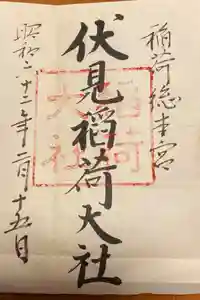 稲荷総本宮
伏見稲荷大社
稲荷
大社
昭和六十二年二月十五日